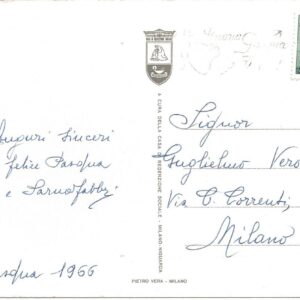 Auguri sinceri
felice Pasqua
e
Pasqua 1966
A CURA DELLA CASA DI REDENZIONE SOCIALE - MILANO NIGUARDA
Signor
Guglielmo Vero
Via C. Correnti,
Milano
PIETRO VERA - MILANO